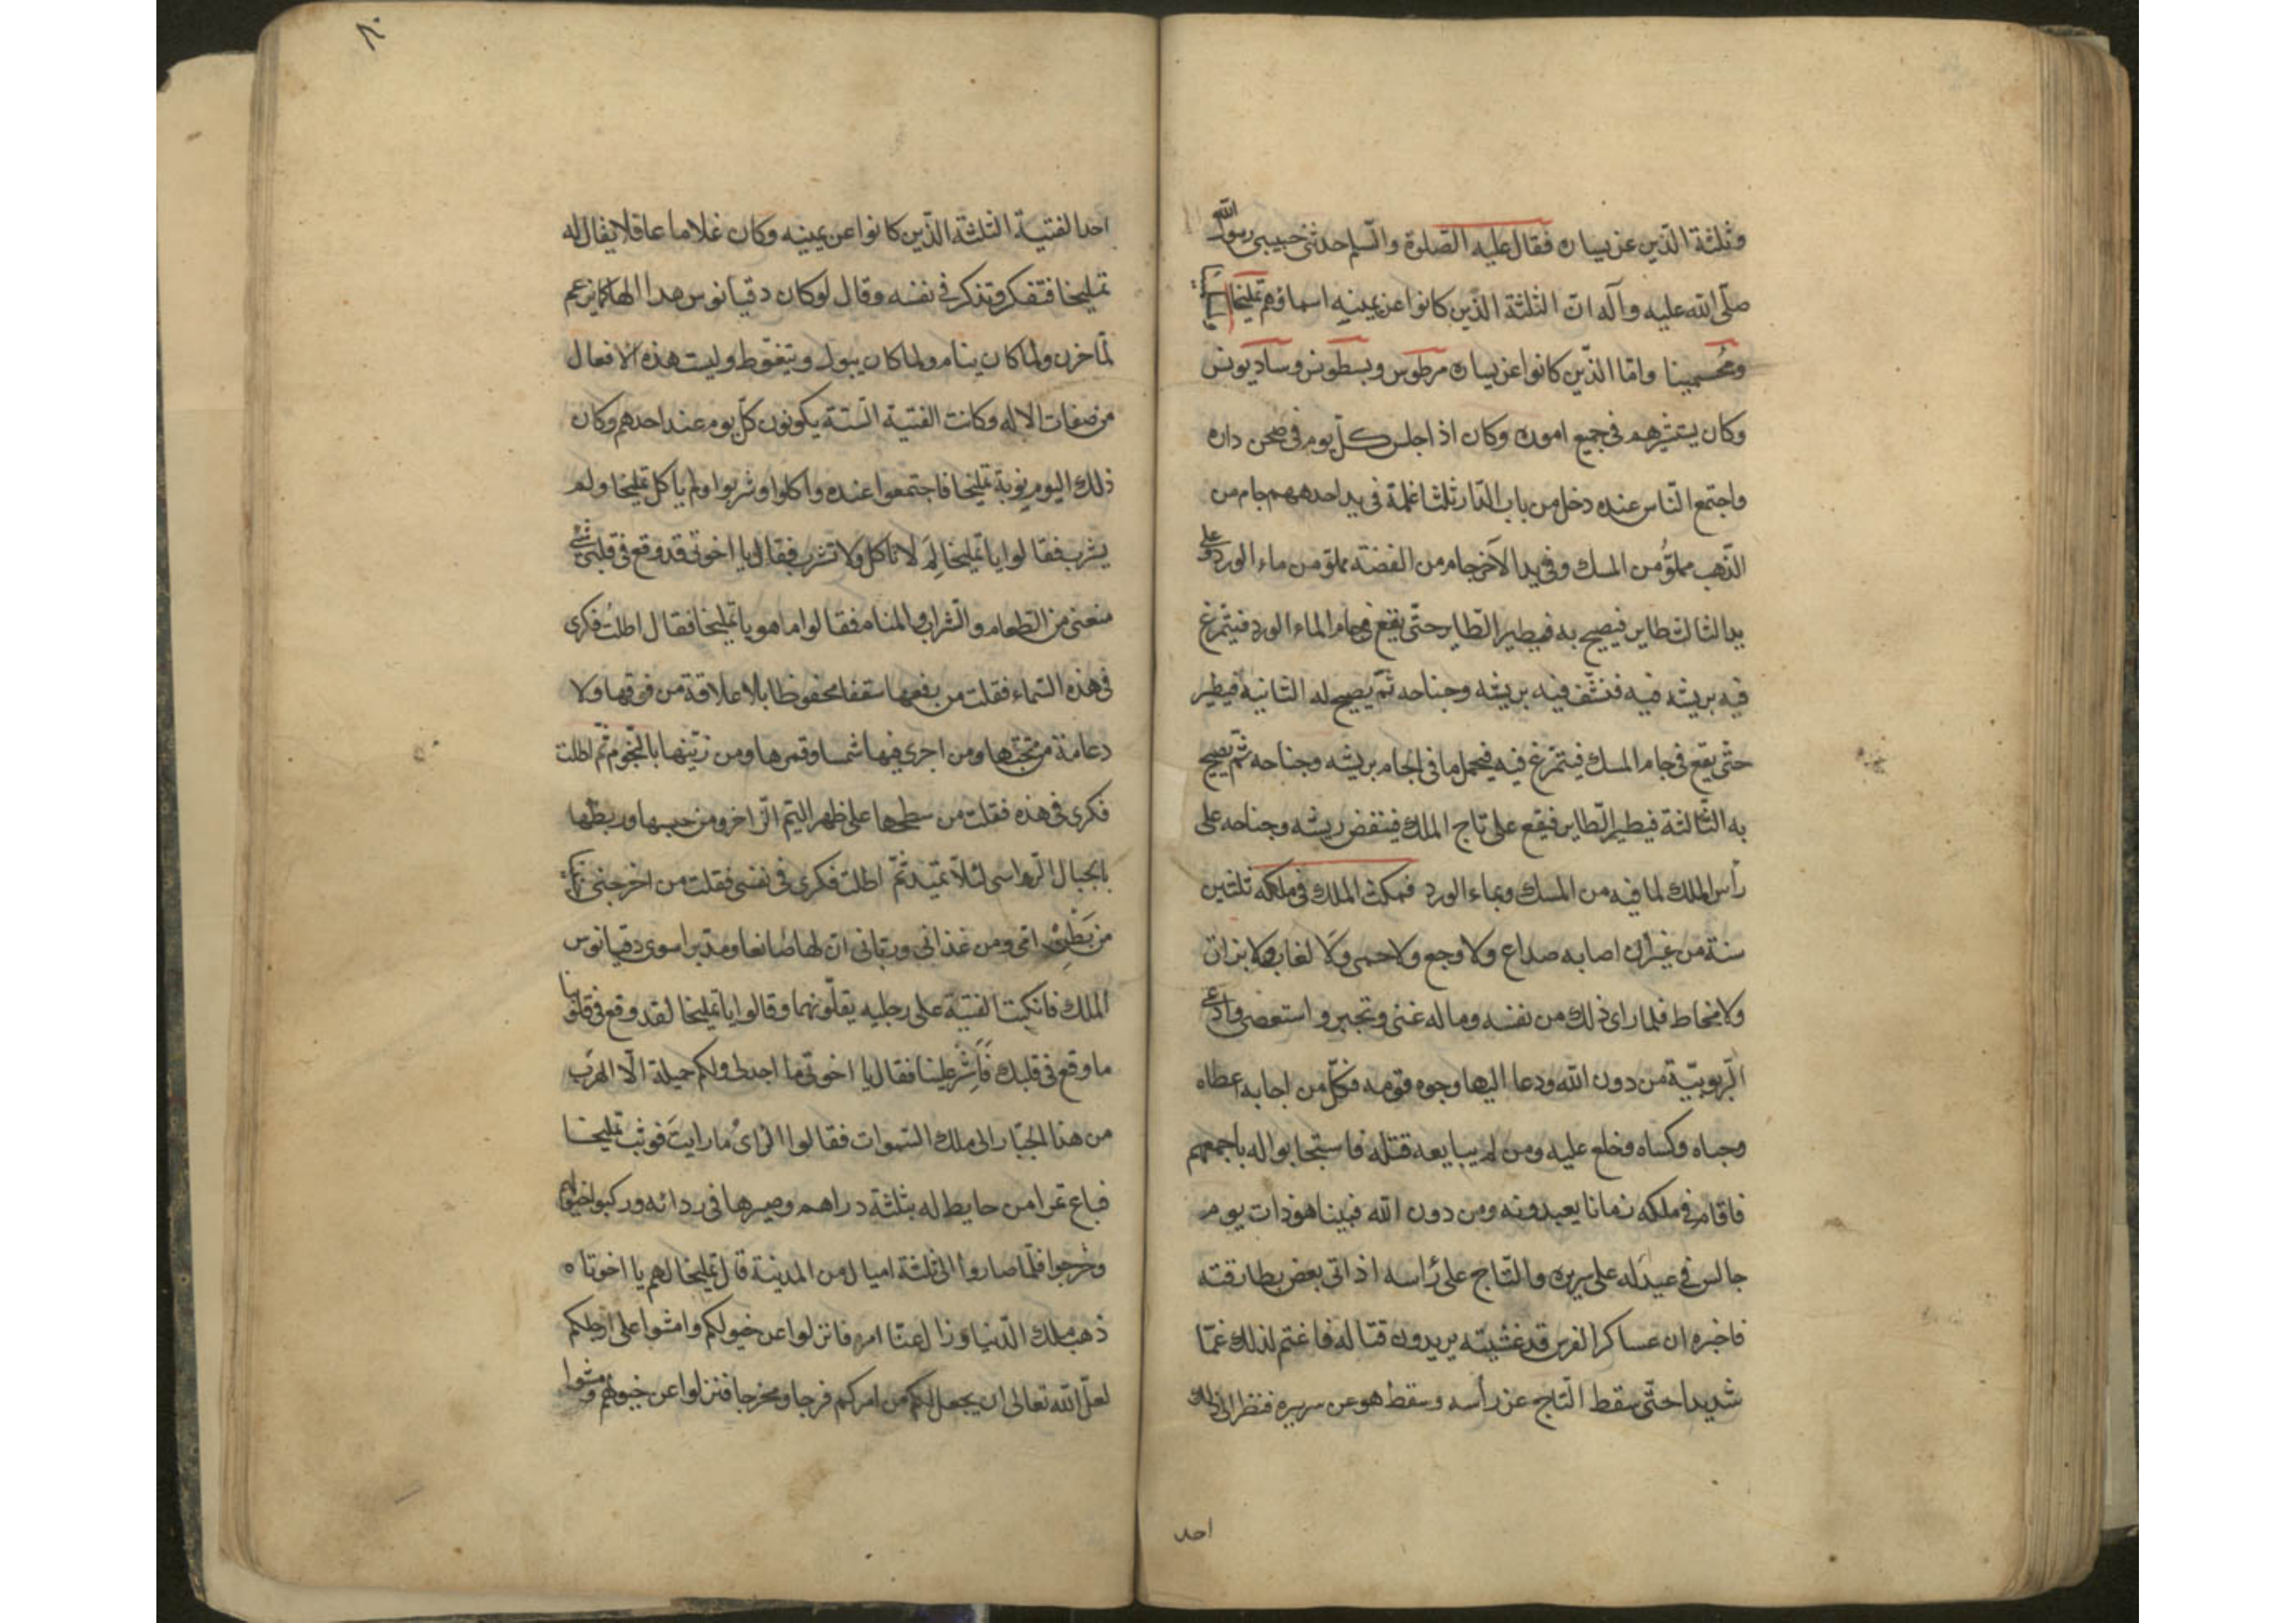 وثلثة الذين عن يساره فقال عليه الصلوة والسلم حدثنى حبيبى رسول الله
صلى الله عليه وآله ان الثلثة الذين كانوا عن يمينه اسماؤهم تمليخا
ومحسمينا واما الذين كانوا عن يساره مرطوس وبسطونس وساديونس
وكان يستشيرهم فى جميع اموره وكان اذ اجلس كل يوم فى صحن داره
واجتمع الناس عنده دخل من باب الدار ثلثا غلمة فى يد احدهم جام من
الذهب مملو من المسك وفى يد الآخر جام من الفضة مملو من ماء الورد وعلى
يد الثالث طاير فيصيح به فيطير الطاير حتى يقع فى جام الماء الورد فيتمرغ
فيه بريشه فيه فنشف فيه بريشه وجناحه ثم يصيح له الثانية فيطير
حتى يقع فى جام المسك فيتمرغ فيه فيحمل ما فى الجام بريشه وجناحه ثم يصيح
به الثالثة فيطير الطاير فيقع على تاج الملك فينفض ريشه وجناحه على
رأس الملك لما فيه من المسك وبماء الورد فمكث الملك فى ملكه ثلثين
سنة من غير ان اصابه صداع ولا وجع ولا حمى ولا لغاب ولا بزاق
ولا مخاط فلما راى ذلك من نفسه وماله غنى وتجبر و استعصى وادعى
الربوبية من دون الله ودعا اليها وجوه قومه فكل من اجابه اعطاه
وحباه وكساه وخلع عليه ومن لم يبايعه قتله فاستجابوا له باجمعهم
فاقام فى ملكه زمانا يعبدونه ومن دون الله فبينا هو ذات يوم
جالس فى عيد له على سريره والتاج على رأسه اذ اتى بعض بطارقته
فاخبره ان عساكر الفرس قد غشيته يريدون قتاله فاغتم لذلك غما
شديدا حتى سقط التاج عن رأسه وسقط هو عن سريره فنظر الى ذلك
احد
٨٠
احد الفتية الثلثة الذين كانوا عن يمينه وكان غلاما عاقلا يقال له
تمليخا فتفكر وتذكر فى نفسه وقال لو كان دقيانوس هذا الها كما يزعم
لما حزن ولما كان ينام ولما كان يبول ويتغوط وليست هذه الافعال
من صفات الاله وكانت الفتية الستة يكونون كل يوم عند احدهم وكان
ذلك اليوم نوبة تمليخا فاجتمعوا عنده واكلوا وشربوا ولم يأكل تمليخا ولم
يشرب فقالوا يا تمليخا لم لا تاكل ولا تشرب فقال يا اخوتى قد وقع فى قلبى شئ
منعنى من الطعام والشراب والمنام فقالوا ما هو يا تمليخا فقال اطلت فكرى
فى هذه السماء فقلت من رفعها سقفا محفوظا بلا علاقة من فوقها ولا
دعامة من تحتها ومن اجرى فيها شمسا وقمرها ومن زينها بالنجوم ثم اطلت
فكرى فى هذه فقلت من سطحها على ظهر اليم الزاخر ومن حبسها وربطها
بالجبال الرواسى لئلا تميد ثم اطلت فكرى فى نفسى فقلت من اخرجنى
من بطن امى ومن غذانى وربانى ان لها صانعا ومدبرا سوى دقيانوس
الملك فانكبت الفتية على رجليه يقبلونهما وقالوا يا تمليخا لقد وقع فى قلوبنا
ما وقع فى قلبك فأشر علينا فقال يا اخوتى ما اجد لى ولكم حيلة الا الهرب
من هذا الجبار الى ملك السموات فقالوا الراى ما رايت فوثب تمليخا
فباع تمرا من حايط له بثلثة دراهم وصيرها فى ردائه وركبوا خيولهم
وخرجوا فلما صاروا الى ثلثة اميال من المدينة قال تمليخا لهم يا اخوتاه
ذهب ملك الدنيا وزال عنا امره فانزلوا عن خيولكم وامشوا على ارجلكم
لعل الله تعالى ان يجعل لكم من امركم فرجا ومخرجا فنزلوا عن خيولهم ومشوا